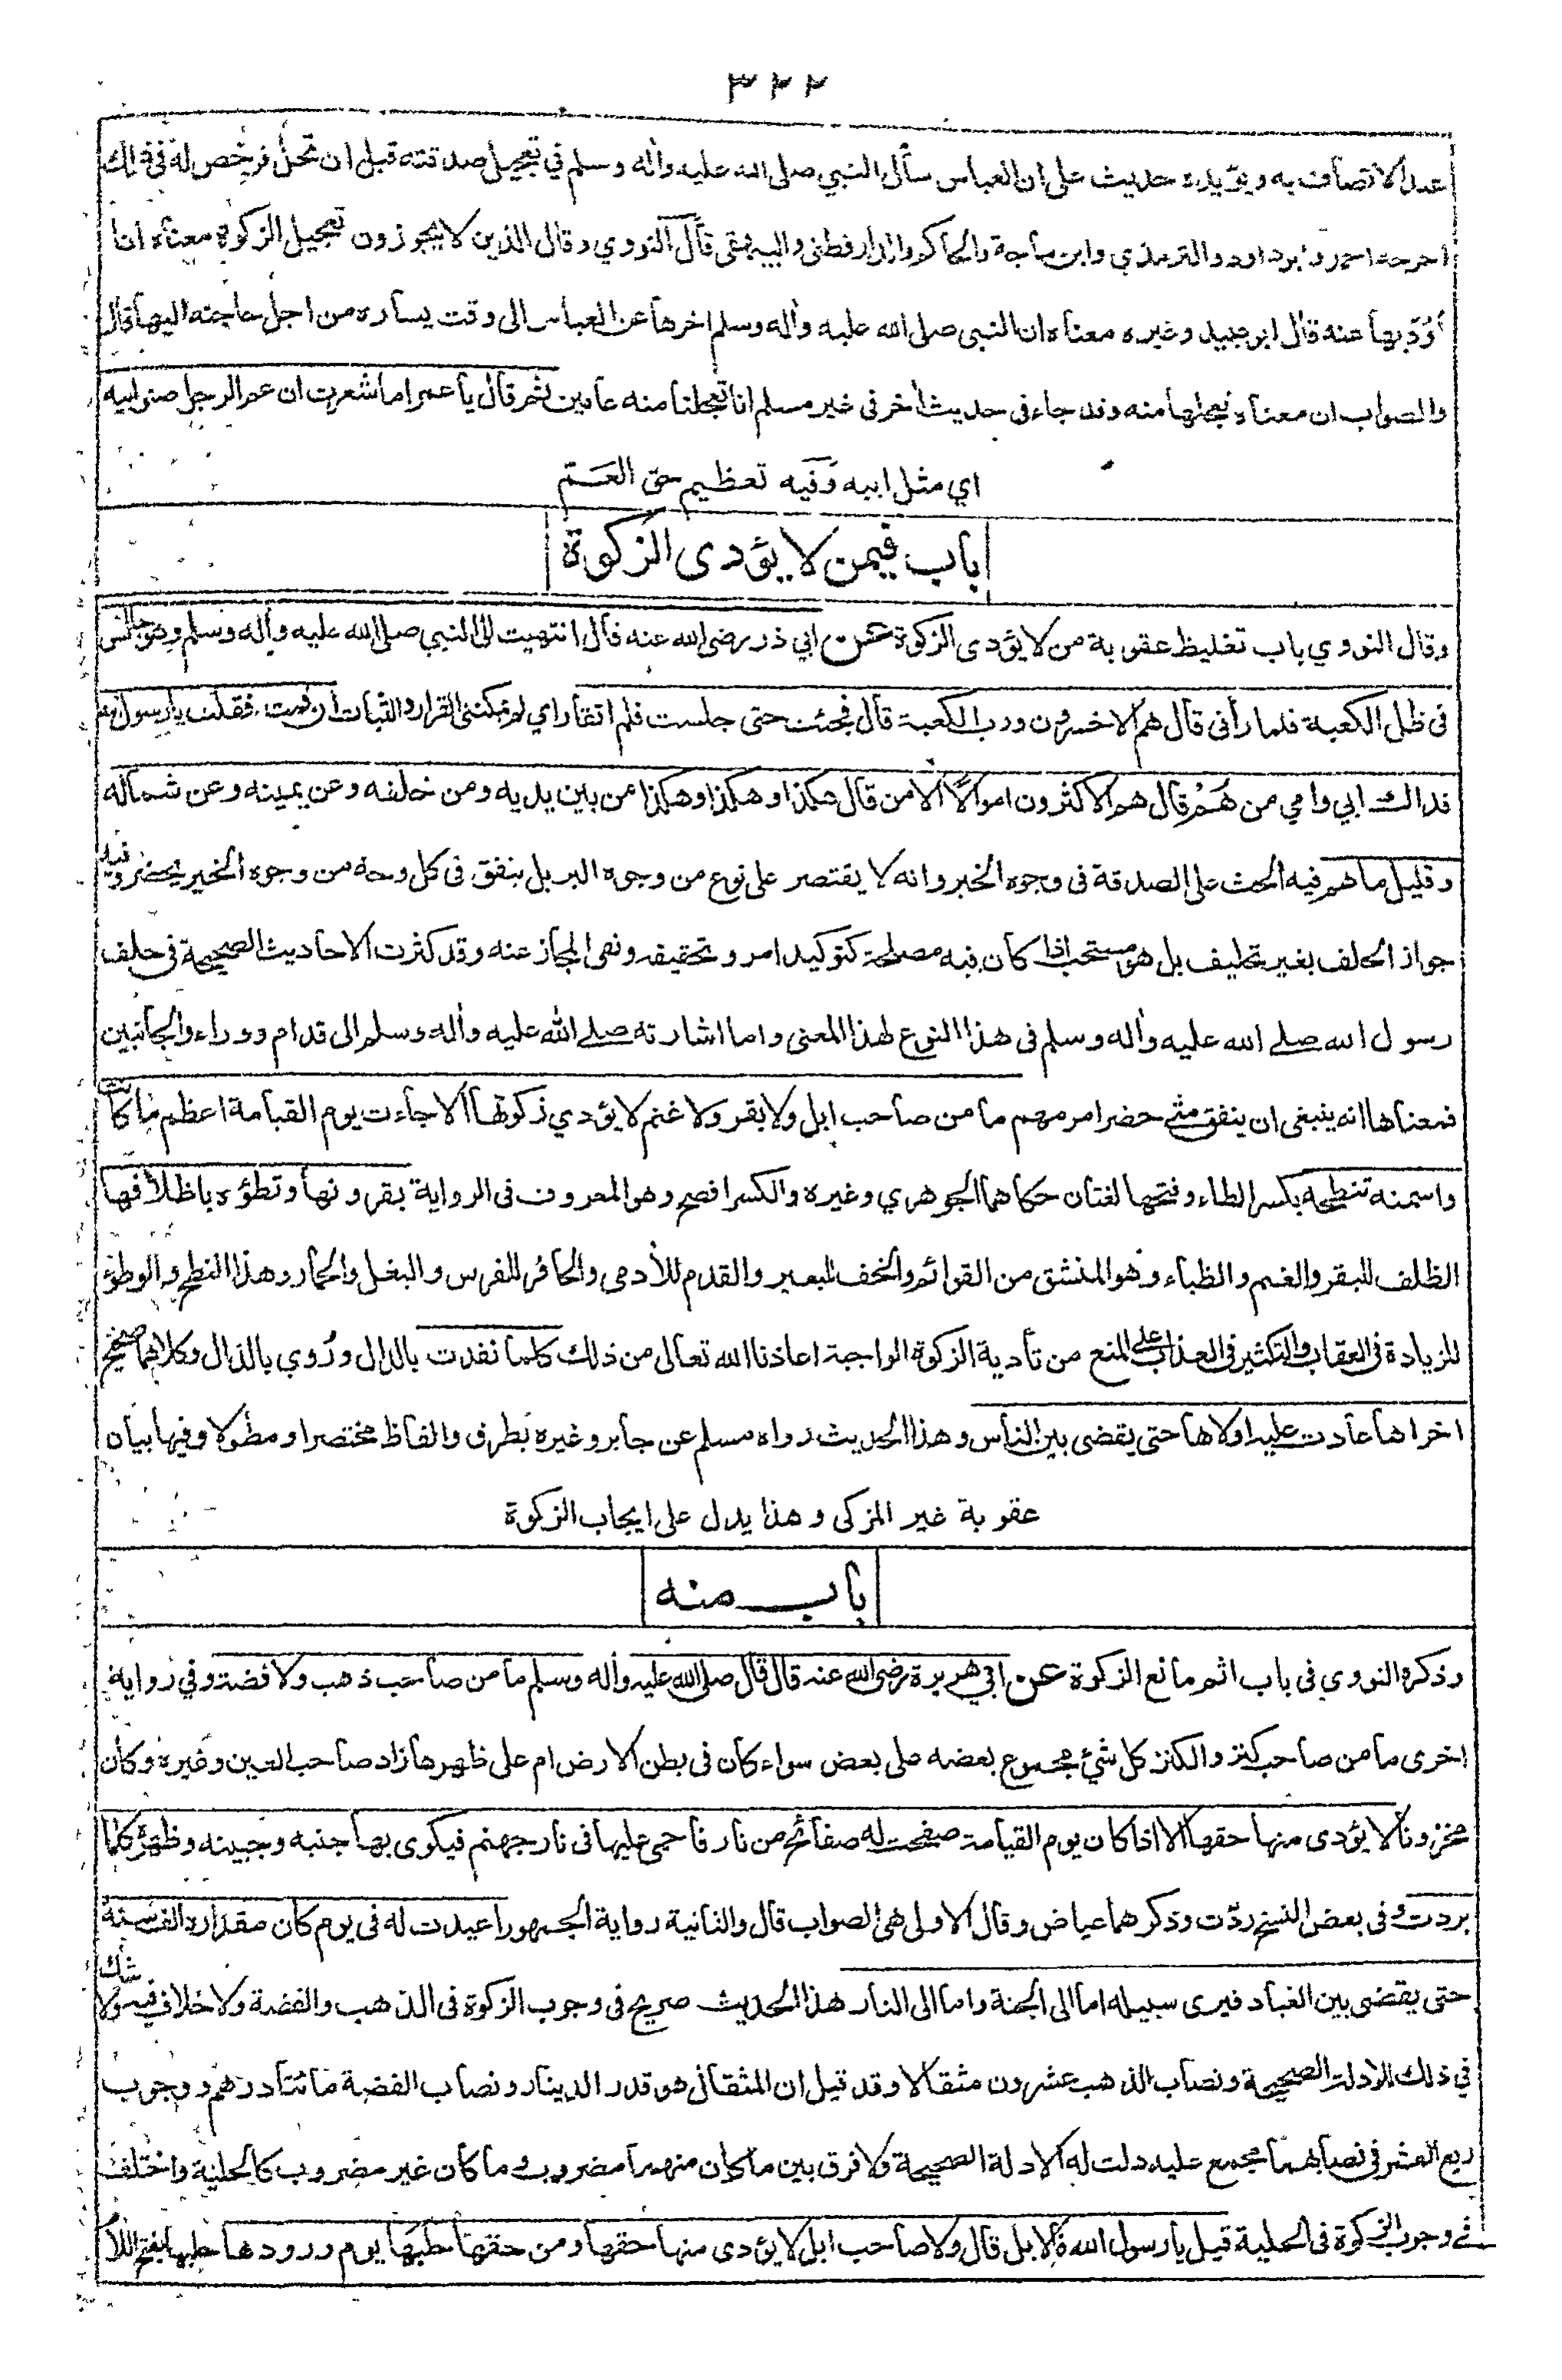 ٣٢٢
عدم الاتصاف به ويؤيده حديث علي ان العباس سأل النبي صلى الله عليه وأله وسلم في تعجيل صدقته قبل ان تحل فرخص له في ذلك
اخرجه احمد وابوداود والترمذي وابن ماجة والحاكم والدارقطنى والبيهقى قال النووي وقال الذين لا يجوزون تعجيل الزكوة معناه انا
أؤدّيها عنه قال ابو عبيد وغيره معناه ان النبى صلى الله عليه وأله وسلم اخرها عن العباس الى وقت يساره من اجل حاجته اليها قال
والصواب ان معناه تعجلتها منه وقد جاء فى حديث أخر فى غير مسلم انا تعجلنا منه عامين ثم قال يا عمر اما شعرت ان عم الرجل صنو ابيه
اي مثل ابيه وفيه تعظيم حق العم
باب فيمن لا يؤدى الزكوة
وقال النووي باب تغليظ عقوبة من لا يؤدى الزكوة عن ابي ذر رضى الله عنه قال انتهيت الى النبي صلى الله عليه وأله وسلم وهو جالس
فى ظل الكعبة فلما رأنى قال هم الاخسرون ورب الكعبة قال فجئت حتى جلست فلم اتقار اي لم يمكننى القرار والثبات أن قمت فقلت يا رسول الله
فداك ابي وامي من هُمْ قال هم الاكثرون اموالًا الا من قال هكذا وهكذا وهكذا من بين يديه ومن خلفه وعن يمينه وعن شماله
وقليل ما هم فيه الحث على الصدقة فى وجوه الخير وانه لا يقتصر على نوع من وجوه البر بل ينفق فى كل وجه من وجوه الخير يحضر وفيه
جواز الحلف بغير تحليف بل هو مستحب اذا كان فيه مصلحة كتوكيد امر وتحقيقه ونفى المجاز عنه وقد كثرت الاحاديث الصحيحة فى حلف
رسول الله صلے الله عليه وأله وسلم فى هذا النوع لهذا المعنى واما اشارته صلے الله عليه وأله وسلم الى قدام ووراء والجانبين
فمعناها انه ينبغى ان ينفق متى حضر امر مهم ما من صاحب ابل ولا بقر ولا غنم لا يؤدي زكوتها الا جاءت يوم القيامة اعظم ما كانت
واسمنه تنطحه بكسر الطاء وفتحها لغتان حكاهما الجوهري وغيره والكسر افصح وهو المعروف فى الرواية بقرونها وتطؤه باظلافها
الظلف للبقر والغنم والظباء وهو المنشق من القوائم والخف للبعير والقدم للأدمى والحافر للفرس والبغل والحمار وهذا النطح والوطؤ
للزيادة فى العقاب والتكثير فى العذاب على المنع من تأدية الزكوة الواجبة اعاذنا الله تعالى من ذلك كلما نفدت بالدال ورُوي بالذال وكلاهما صحيح
اخراها عادت عليه اولاها حتى يقضى بين الناس وهذا الحديث رواه مسلم عن جابر وغيره بطرق والفاظ مختصرا ومطولا وفيها بيان
عقوبة غير المزكى وهذا يدل على ايجاب الزكوة
باب منه
وذكره النووي فى باب اثم مانع الزكوة عن ابي هريرة رضى الله عنه قال قال صلى الله عليه وأله وسلم ما من صاحب ذهب ولا فضة وفي رواية
اخرى ما من صاحب كنز والكنز كل شئ مجموع بعضه على بعض سواء كان فى بطن الارض ام على ظهرها زاد صاحب العين وغيره وكان
مخزونا لا يؤدى منها حقها الا اذا كان يوم القيامة صفحت له صفائح من نار فاحمى عليها فى نار جهنم فيكوى بها جنبه وجبينه وظهره كلما
بردت وفى بعض النسخ ردّت وذكرهما عياض وقال الاولى هى الصواب قال والثانية رواية الجمهور اعيدت له فى يوم كان مقداره الف سنة
حتى يقضى بين العباد فيرى سبيله اما الى الجنة واما الى النار هذا الحديث صريح فى وجوب الزكوة فى الذهب والفضة ولا خلاف فيه ولا شك
في ذلك للادلة الصحيحة ونصاب الذهب عشرون مثقالا وقد قيل ان المثقال هو قدر الدينار ونصاب الفضة مائتا درهم ووجوب
ربع العشر فى نصابهما مجمع عليه دلت له الادلة الصحيحة ولا فرق بين ما كان منهما مضروب وما كان غير مضروب كالحلية واختلف
فے وجوب الزكوة فى الحلية قيل يا رسول الله فالابل قال ولا صاحب ابل لا يؤدى منها حقها ومن حقها حلبها يوم ورودها حلبها بفتح اللام